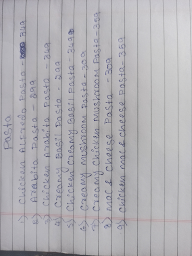 Pasta
1) Chicken Alfredo Pasta - 349
2) Arabita Pasta - 299
3) Chicken Arabita Pasta - 349
4) Creamy Basil Pasta - 299
5) Chicken Creamy Basil Pasta - 349
6) Creamy Mushroom Pasta - 309
7) Creamy Chicken Mushroom Pasta - 359
8) Mac & Cheese Pasta - 309
9) Chicken Mac & Cheese Pasta - 359